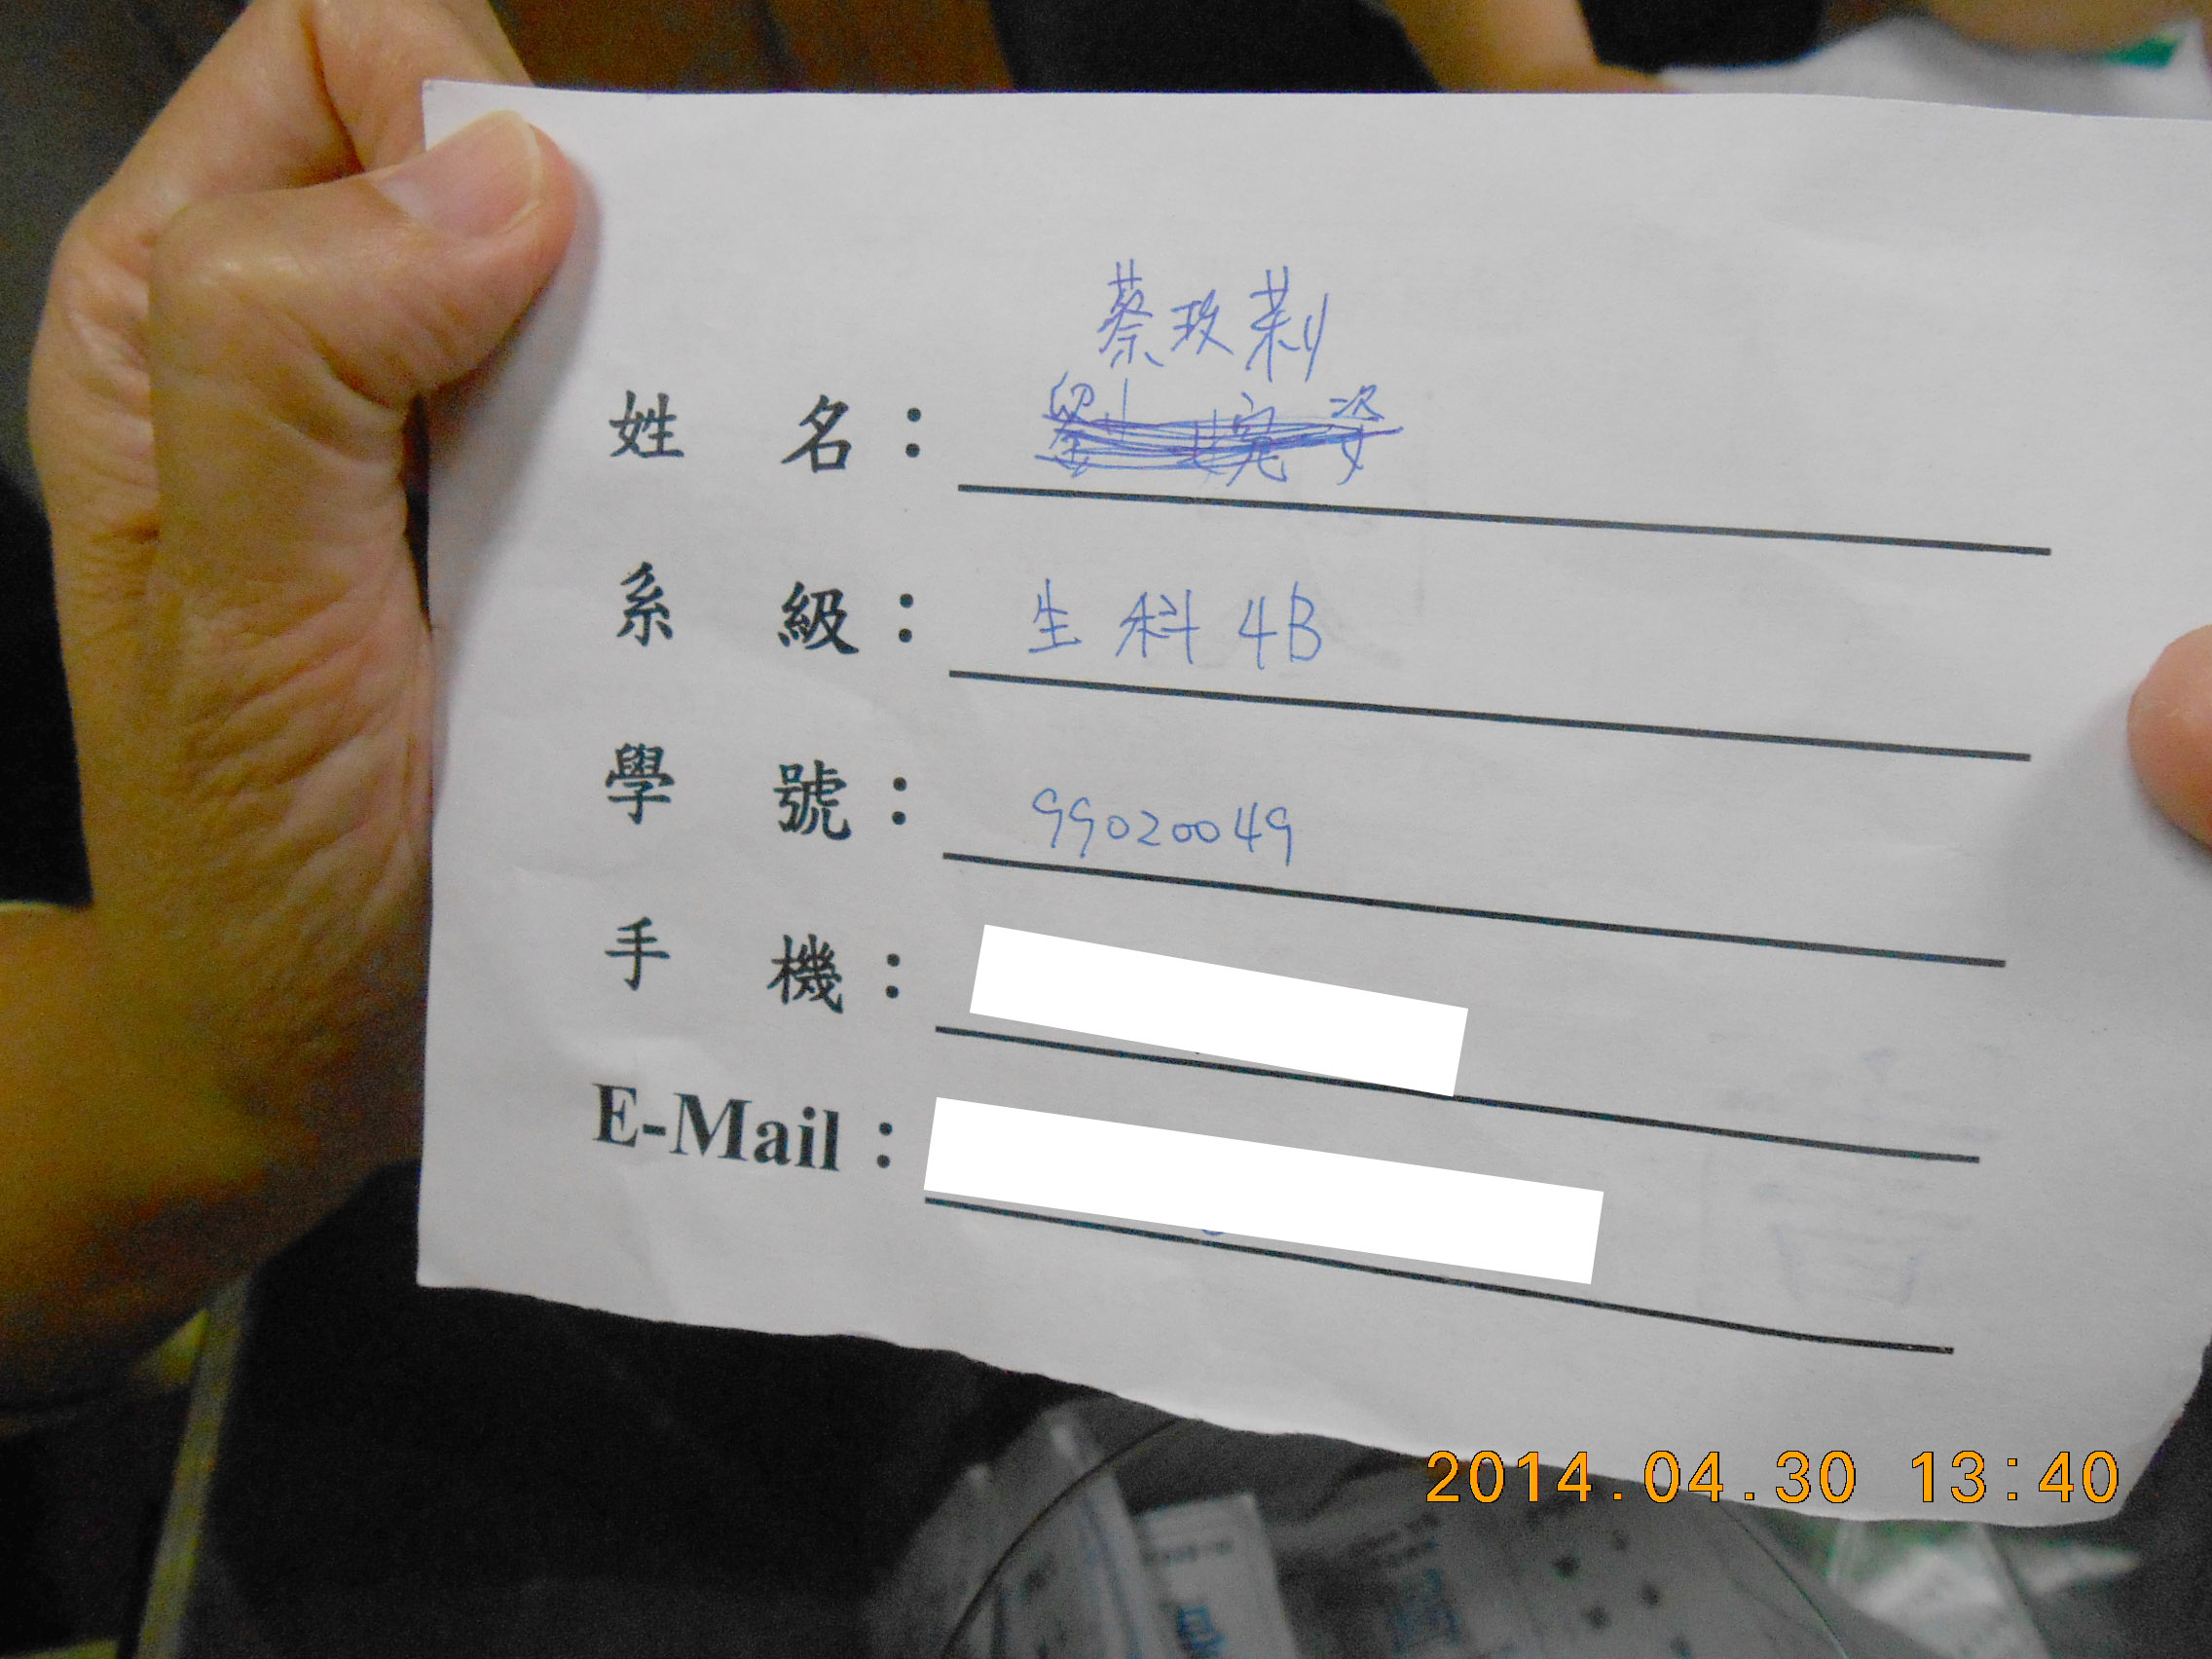 蔡玫莉
姓名：劉婉姿
系級：生科4B
學號：99020049
手機：
E-Mail：
2014.04.30 13:40